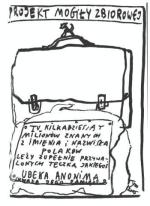 PROJEKT MOGIŁY ZBIOROWEJ
TU KILKADZIESIĄT
MILIONÓW ZNANYCH
Z IMIENIA I NAZWISKA
POLAKÓW
LEŻY ZUPEŁNIE PRZYWA-
LONYCH TECZKĄ JAKIEGOŚ
UBEKA ANONIMA